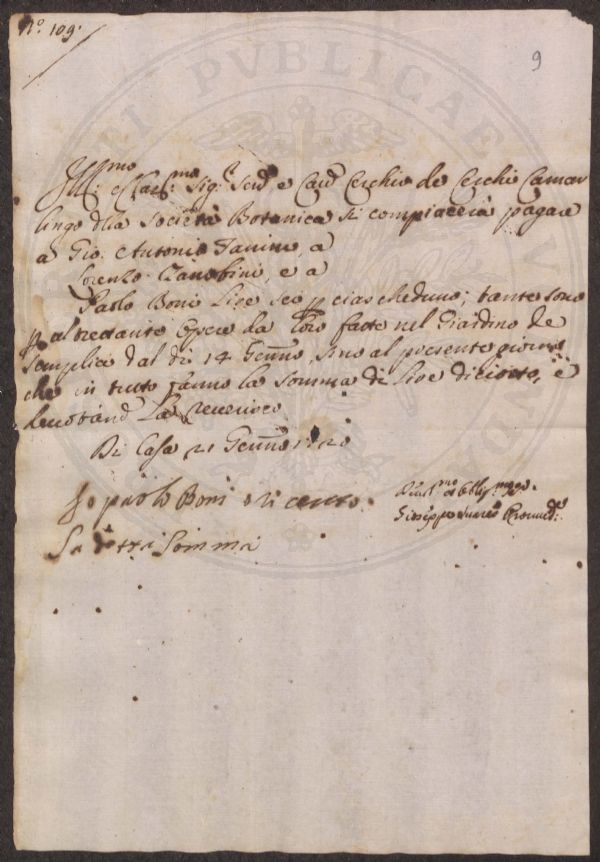 N.º 109.
9
Ill:mo e Clar:mo Sig:r Send e Cav Cerchio de Cerchi Camar
lingo della Società Botanica si compiacerà pagare
a Gio: Antonio Fanini, a
Lorenzo Zanobini, e a
Paolo Boni Lire sei p ciascheduno; tante sono
p altrettante Opere da loro fatte nel Giardino de
Semplici dal di 14 Genno, sino al presente giorno
che in tutto fanno la somma di Lire diciotto, e
la reverisco
Di Casa 21 Genno
Io paolo Boni o ri ceuto
La detta Somma
Giuseppe Proved:re